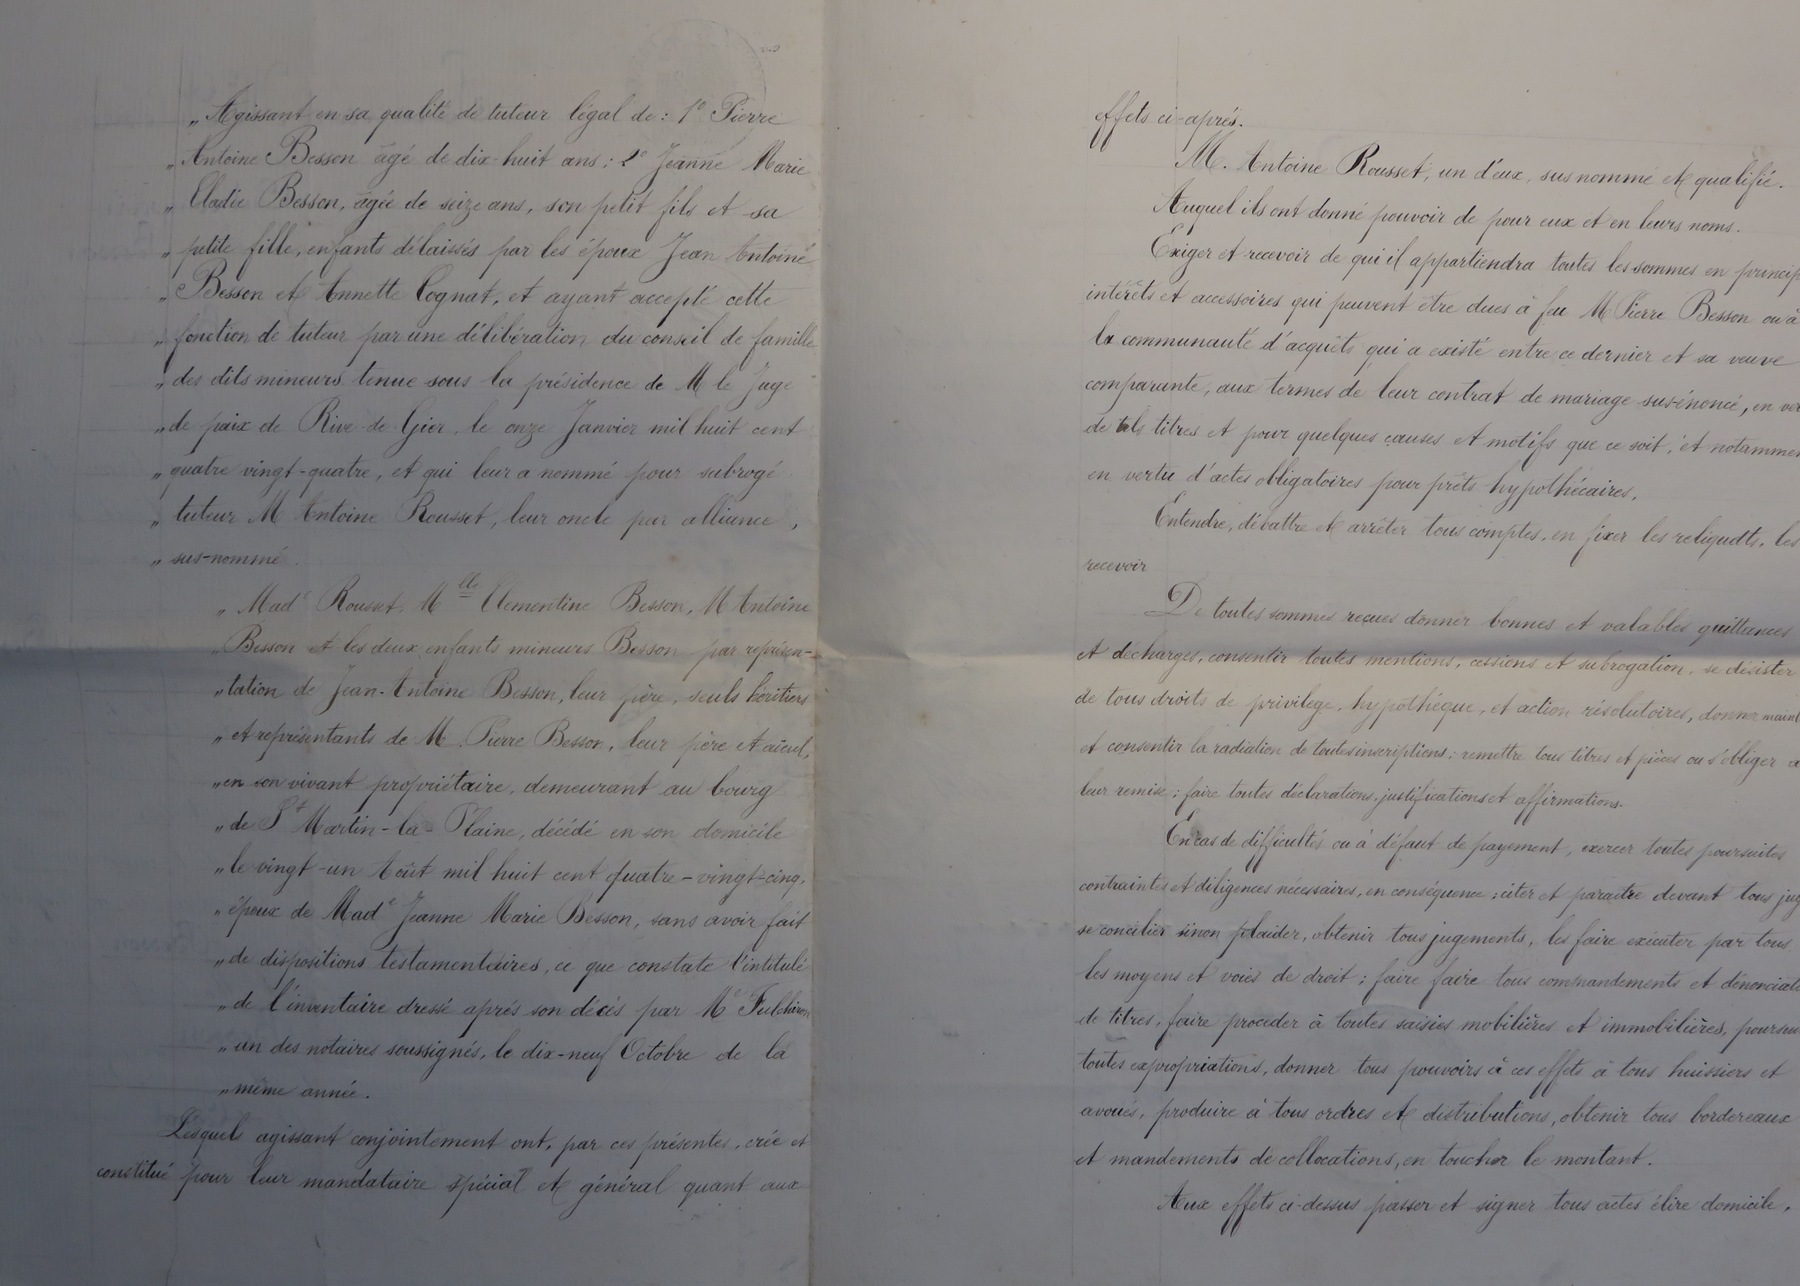 „ Agissant en sa qualité de tuteur légal de : 1° Pierre
„ Antoine Besson âgé de dix-huit ans ; 2° Jeanne Marie
„ Eladie Besson, âgée de seize ans, son petit fils et sa
„ petite fille, enfants délaissés par les époux Jean Antoine
„ Besson et Annette Cognat, et ayant accepté cette
„ fonction de tuteur par une délibération du conseil de famille
„ des dits mineurs tenue sous la présidence de M le Juge
„ de paix de Rive-de-Gier, le onze Janvier mil huit cent
„ quatre vingt-quatre, et qui leur a nommé pour subrogé
„ tuteur M Antoine Rousset, leur oncle par alliance,
„ sus-nommé.
„ Made Rousset, Melle Clementine Besson, M Antoine
„ Besson et les deux enfants mineurs Besson par représen-
„ tation de Jean-Antoine Besson, leur père, seuls héritiers
„ et représentants de M. Pierre Besson, leur père et aïeul,
„ en son vivant propriétaire, demeurant au bourg
„ de St Martin-la-Plaine, décédé en son domicile
„ le vingt-un Août mil huit cent quatre-vingt-cinq,
„ époux de Made Jeanne Marie Besson, sans avoir fait
„ de dispositions testamentaires, ce que constate l'intitulé
„ de l'inventaire dressé après son décès par Me Fulchiron
„ un des notaires soussignés, le dix-neuf Octobre de la
„ même année.
Lesquels agissant conjointement ont, par ces présentes, crée et
constitué pour leur mandataire spécial et général quant aux
effets ci-après.
M. Antoine Rousset, un d'eux, sus nommé et qualifié.
Auquel ils ont donné pouvoir de pour eux et en leurs noms.
Exiger et recevoir de qui il appartiendra toutes les sommes en princip
intérêts et accessoires qui peuvent être dues à feu M Pierre Besson ou à
la communauté d'acquêts qui a existé entre ce dernier et sa veuve
comparante, aux termes de leur contrat de mariage sus-énoncé, en ver
de tels titres et pour quelques causes et motifs que ce soit, et notammen
en vertu d'actes obligatoires pour prêts hypothécaires,
Entendre, débattre et arrêter tous comptes, en fixer les reliquats, les
recevoir
De toutes sommes reçues donner bonnes et valables quittances
et décharges, consentir toutes mentions, cessions et subrogation, se désister
de tous droits de privilège, hypothéque, et action résolutoires, donner mainl
et consentir la radiation de toutes inscriptions ; remettre tous titres et pièces ou s'obliger à
leur remise ; faire toutes déclarations, justifications et affirmations.
En cas de difficultés ou à défaut de payement, exercer toutes poursuites
contraintes et diligences nécessaires, en conséquence ; citer et paraître devant tous jug
se concilier sinon plaider, obtenir tous jugements, les faire exécuter par tous
les moyens et voies de droit ; faire faire tous commandements et dénonciati
de titres, faire procéder à toutes saisies mobilières et immobilières, poursui
toutes expropriations, donner tous pouvoirs à ces effets à tous huissiers et
avoués, produire à tous ordres et distributions, obtenir tous bordereaux
et mandements de collocations, en toucher le montant.
Aux effets ci-dessus passer et signer tous actes élire domicile,